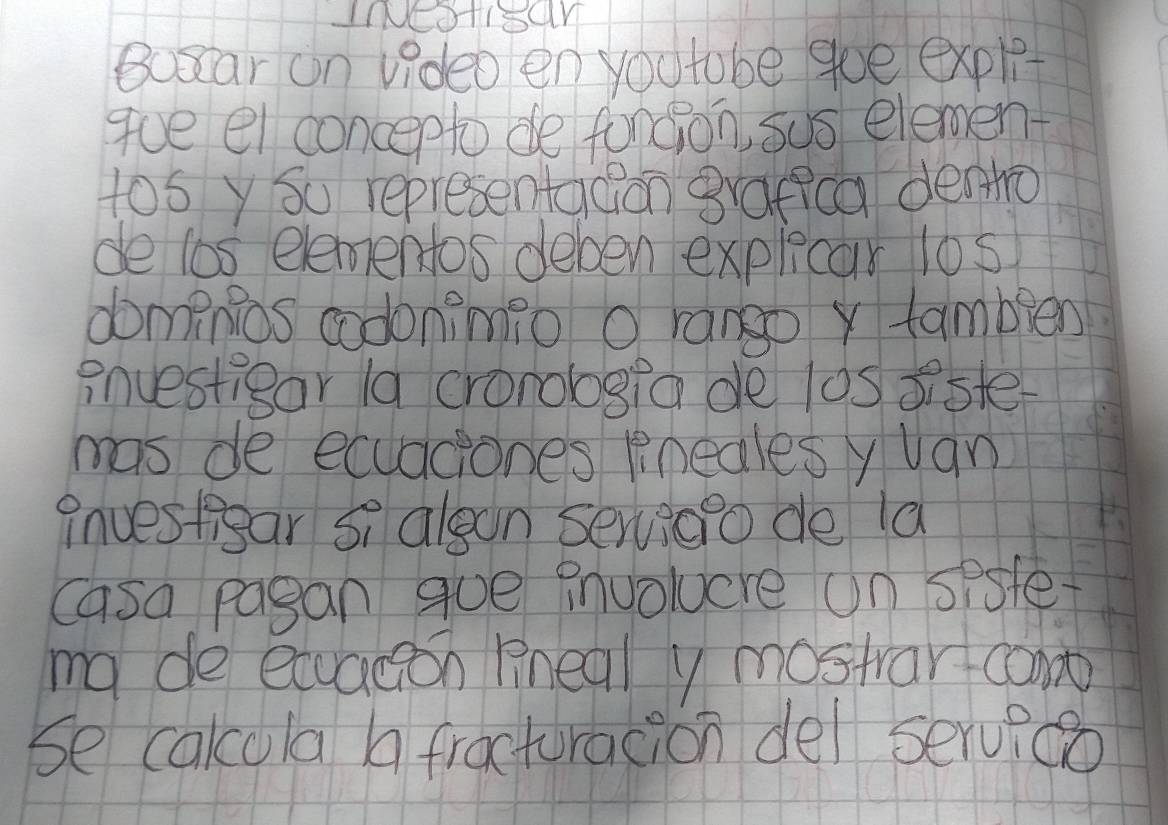 Investigar
Buscar un video en youtube que expli-
que el concepto de función, sus elemen-
tos y su representación grafica dentro
de los elementos deben explicar los
dominios codonimio o rango y tambien
investigar la cronologia de los siste-
mas de ecuaciones lineales y van
investigar si algun servicio de la
casa pagan que involucre un siste-
ma de ecuación lineal y mostrar como
se calcula la fracturación del servicio